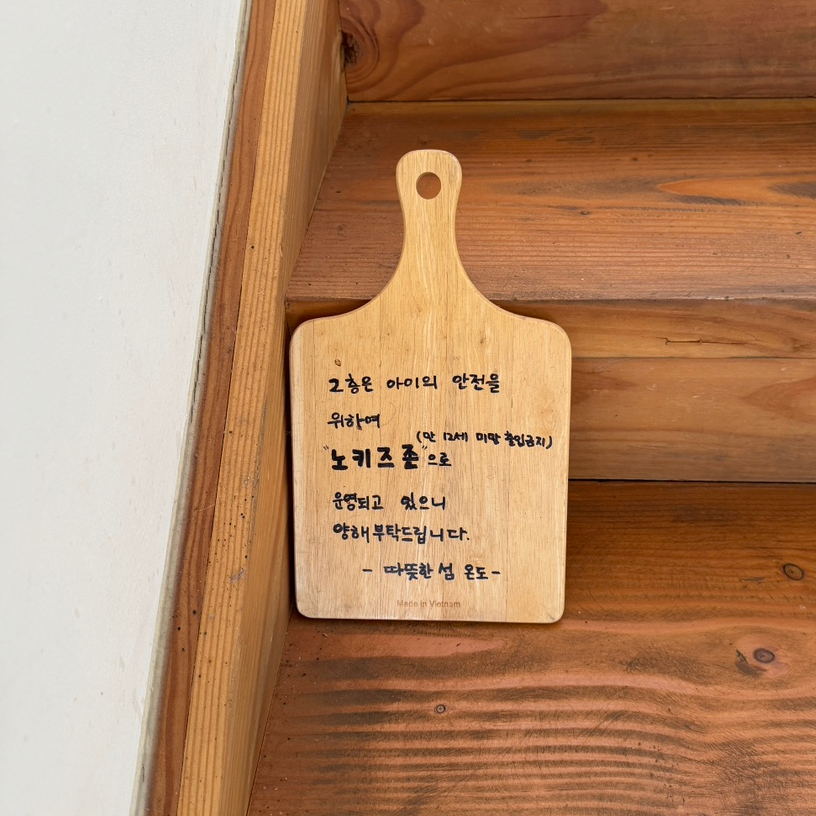 2층은 아이의 안전을
위하여
(만 12세 미만 출입금지)
"노키즈존"으로
운영되고 있으니
양해부탁드립니다.
- 따뜻한 섬 온도-
Made in Vietnam